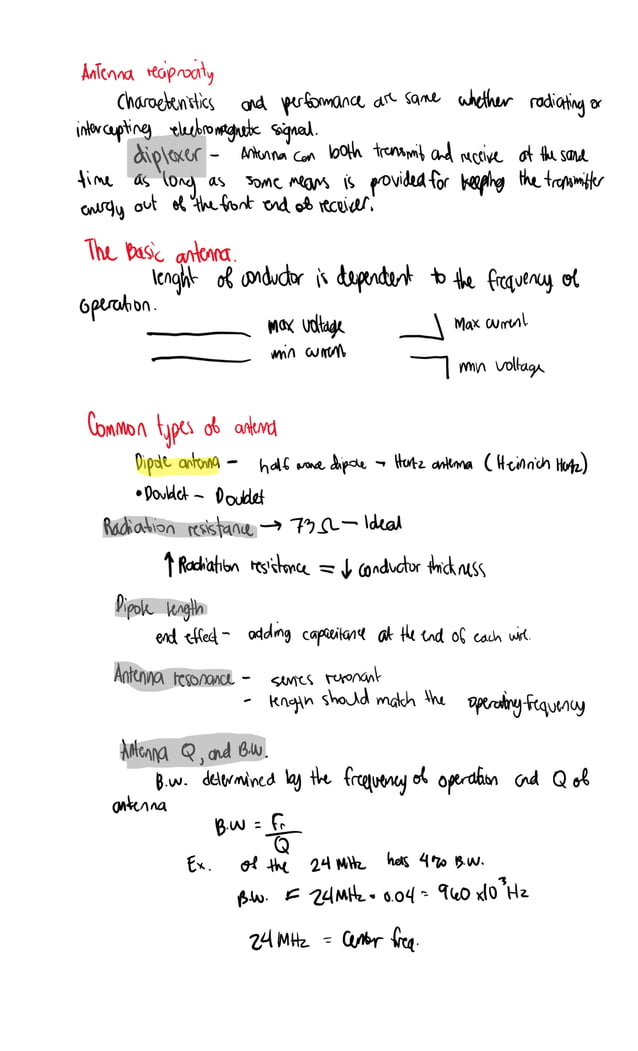 Antenna reciprocity
Characteristics and performance are same whether radiating or
intercepting electromagnetic signal.
diplexer - Antenna can both transmit and receive at the same
time as long as some means is provided for keeping the transmitter
energy out of the front end of receiver.
The Basic antenna.
lenght of conductor is dependent to the frequency of
operation.
max voltage
min current
Max current
min voltage
Common types of antenna
Dipole antenna - half wave dipole → Hertz antenna (Heinrich Hertz)
• Doublet - Doublet
Radiation resistance → 73Ω - Ideal
↑ Radiation resistance = ↓ conductor thickness
Dipole length
end effect - adding capacitance at the end of each wire.
Antenna resonance - series resonant
- length should match the operating frequency
Antenna Q, and B.W.
B.W. determined by the frequency of operation and Q of
antenna
B.W = Fr / Q
Ex. of the 24 MHz has 4% B.W.
B.W. = 24MHz • 0.04 = 960 x10³ Hz
24 MHz = Center freq.